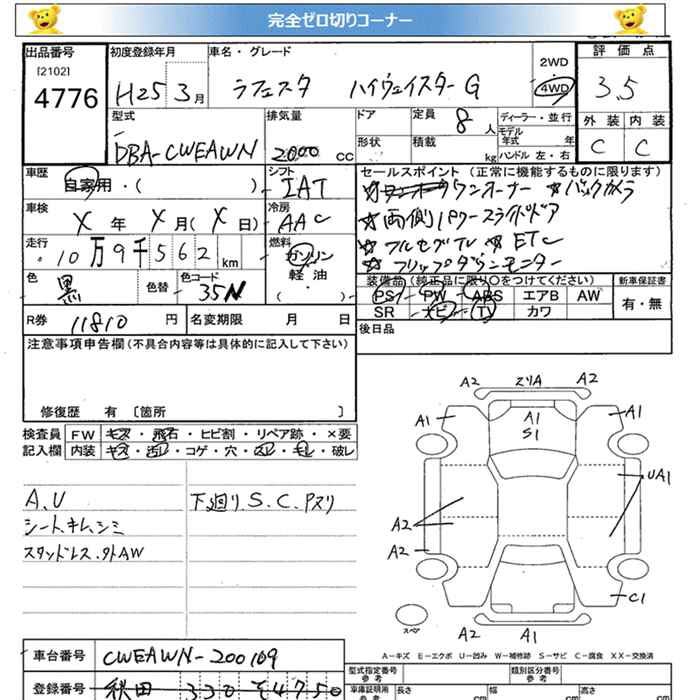 完全ゼロ切りコーナー
出品番号
[2102]
4776
初度登録年月
H25 3月
車名・グレード
ラフェスタ ハイウェイスターG
2WD
4WD
評価点
3.5
型式
DBA-CWEAWN
排気量
2000 cc
ドア
形状
定員
8人
積載
kg
ディーラー・並行
モデル年式 年
ハンドル 左・右
外装 内装
C C
車歴
自家用・( )
シフト
IAT
セールスポイント(正常に機能するものに限ります)
ワンオーナー ☆バックカメラ
☆両側パワースライドドア
☆フルセグTV ☆ETC
☆フリップダウンモニター
車検
X年 X月(X日)
冷房
AAC
走行
10万9千562km
燃料
ガソリン
軽油
・
( )
色
黒
色替
色コード
35N
装備品(純正品に限り○をつけてください)
PS PW ABS エアB AW
SR ナビ TV カワ
新車保証書
有・無
R券
11810円
名変期限 月 日
後日品
注意事項申告欄(不具合内容等は具体的に記入して下さい)
修復歴 有〔箇所 〕
検査員 FW キズ・飛石・ヒビ割・リペア跡・×要
記入欄 内装 キズ・汚レ・コゲ・穴・スレ・キレ・破レ
A.U
シートキレ.シミ
スタッドレス.外AW
下廻り.S.C.Pヌリ
A2 ヌリA A2
A1 A1 A1
S1
UA1
A2
A2
C1
スペア
A2 A1
A-キズ E-エクボ U-凹み W-補修跡 S-サビ C-腐食 XX-交換済
車台番号
CWEAWN-200109
登録番号
秋田 330 そ4750
型式指定番号
参考
類別区分番号
参考
車庫証明用
参考
長さ cm
幅 cm
高さ cm